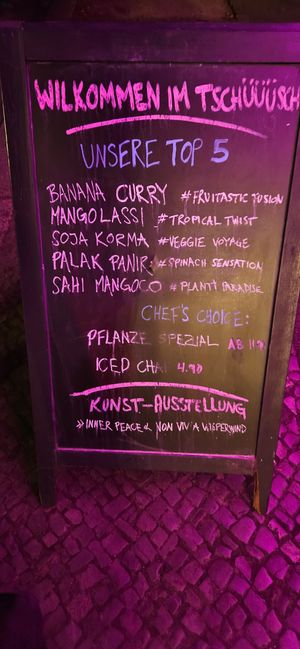 WILKOMMEN IM TSCHÜÜÜSCH
UNSERE TOP 5
BANANA CURRY #FRUITASTIC FUSION
MANGOLASSI #TROPICAL TWIST
SOJA KORMA #VEGGIE VOYAGE
PALAK PANIR #SPINACH SENSATION
SAHI MANGOCO #PLANTY PARADISE
CHEF'S CHOICE:
PFLANZE SPEZIAL AB
ICED CHAI 4.90
KUNST-AUSSTELLUNG
»INNER PEACE« VON VIVA WISPERWIND